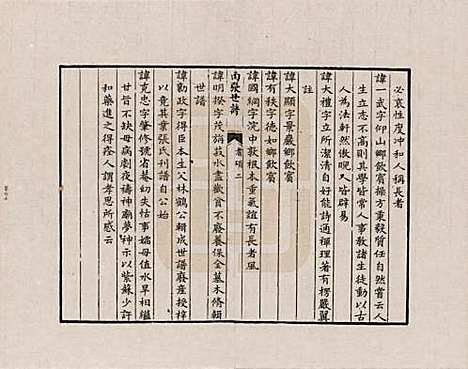 必裒性度冲和人稱長者
諱一武字仰山鄉飲賓操方秉毅質任自然嘗云人
生立志不高則其學皆常人事教諸生徒動以古
人為法軒然傲晚又皆辟易
諱大禮字立所潔清自好能詩通禪理著有楞嚴翼
註
諱大顯字景嚴鄉飲賓
諱有秩字德如鄉飲賓
諱國綱字浣中敦根本重氣誼有長者風
南張世譜
書項二
諱明揆字茂旃菽水盡歡貧不廢養保全墓木脩輯
世譜
諱勸政字得臣本生父林鶴公輯成世譜廢產授梓
以竟其業張氏刊譜自公始
諱克忠字肇修魏省菴幼失怙事孀母值水旱相繼
甘旨不缺母病劇夜禱神廟夢神示以紫蘇少許
和藥進之得痊人謂孝思所感云